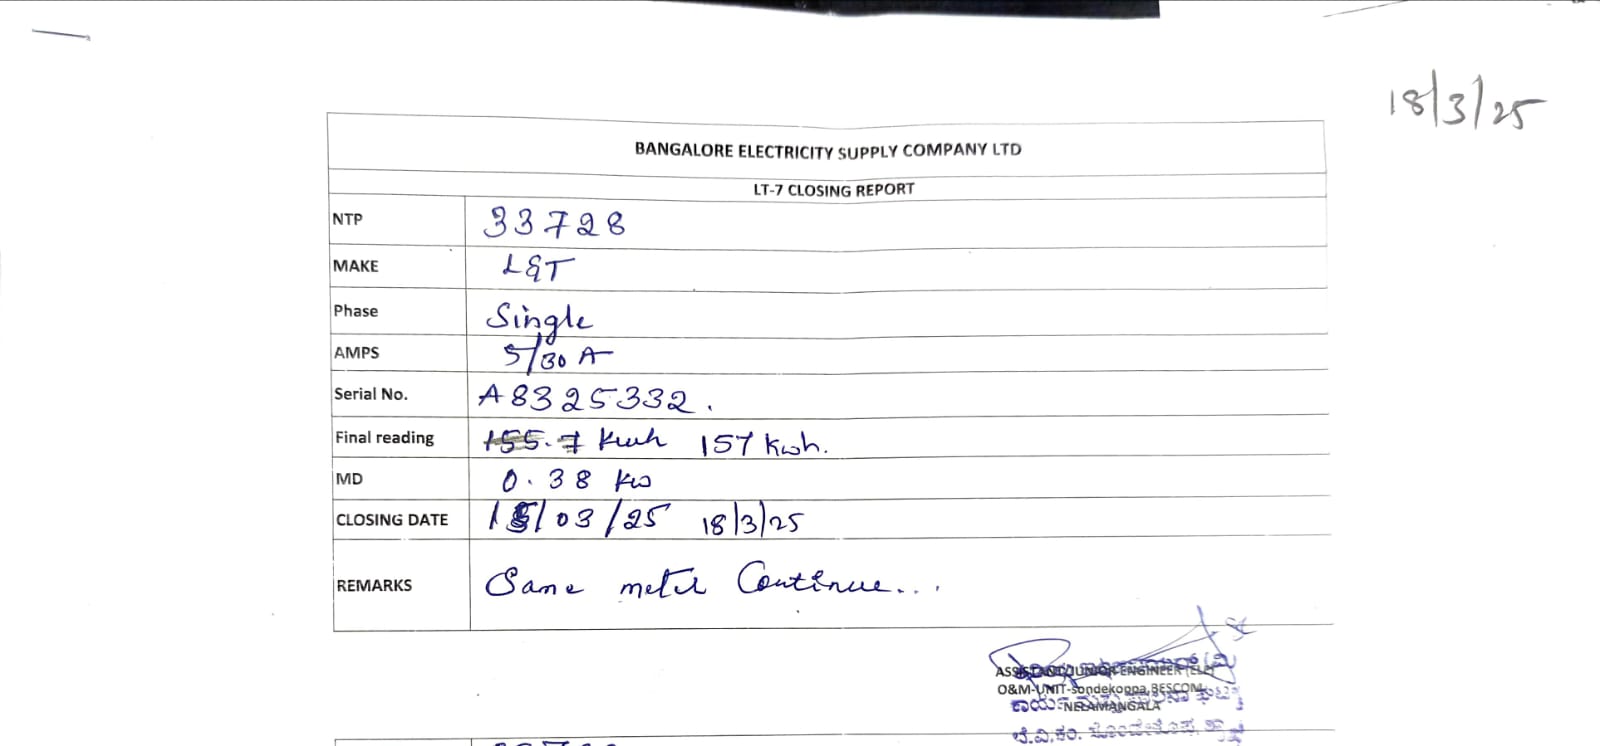 18/3/25
BANGALORE ELECTRICITY SUPPLY COMPANY LTD
LT-7 CLOSING REPORT
NTP 33728
MAKE L&T
Phase Single
AMPS 5/30 A
Serial No. A8325332.
Final reading 155.7 Kwh 157 Kwh.
MD 0.38 Kw
CLOSING DATE 18/03/25 18/3/25
REMARKS Same meter Continue...
ASSISTANT/JUNIOR ENGINEER (ELE)
O&M-UNIT-Sondekoppa, BESCOM
NELAMANGALA
ಬೆ.ವಿ.ಕಂ.